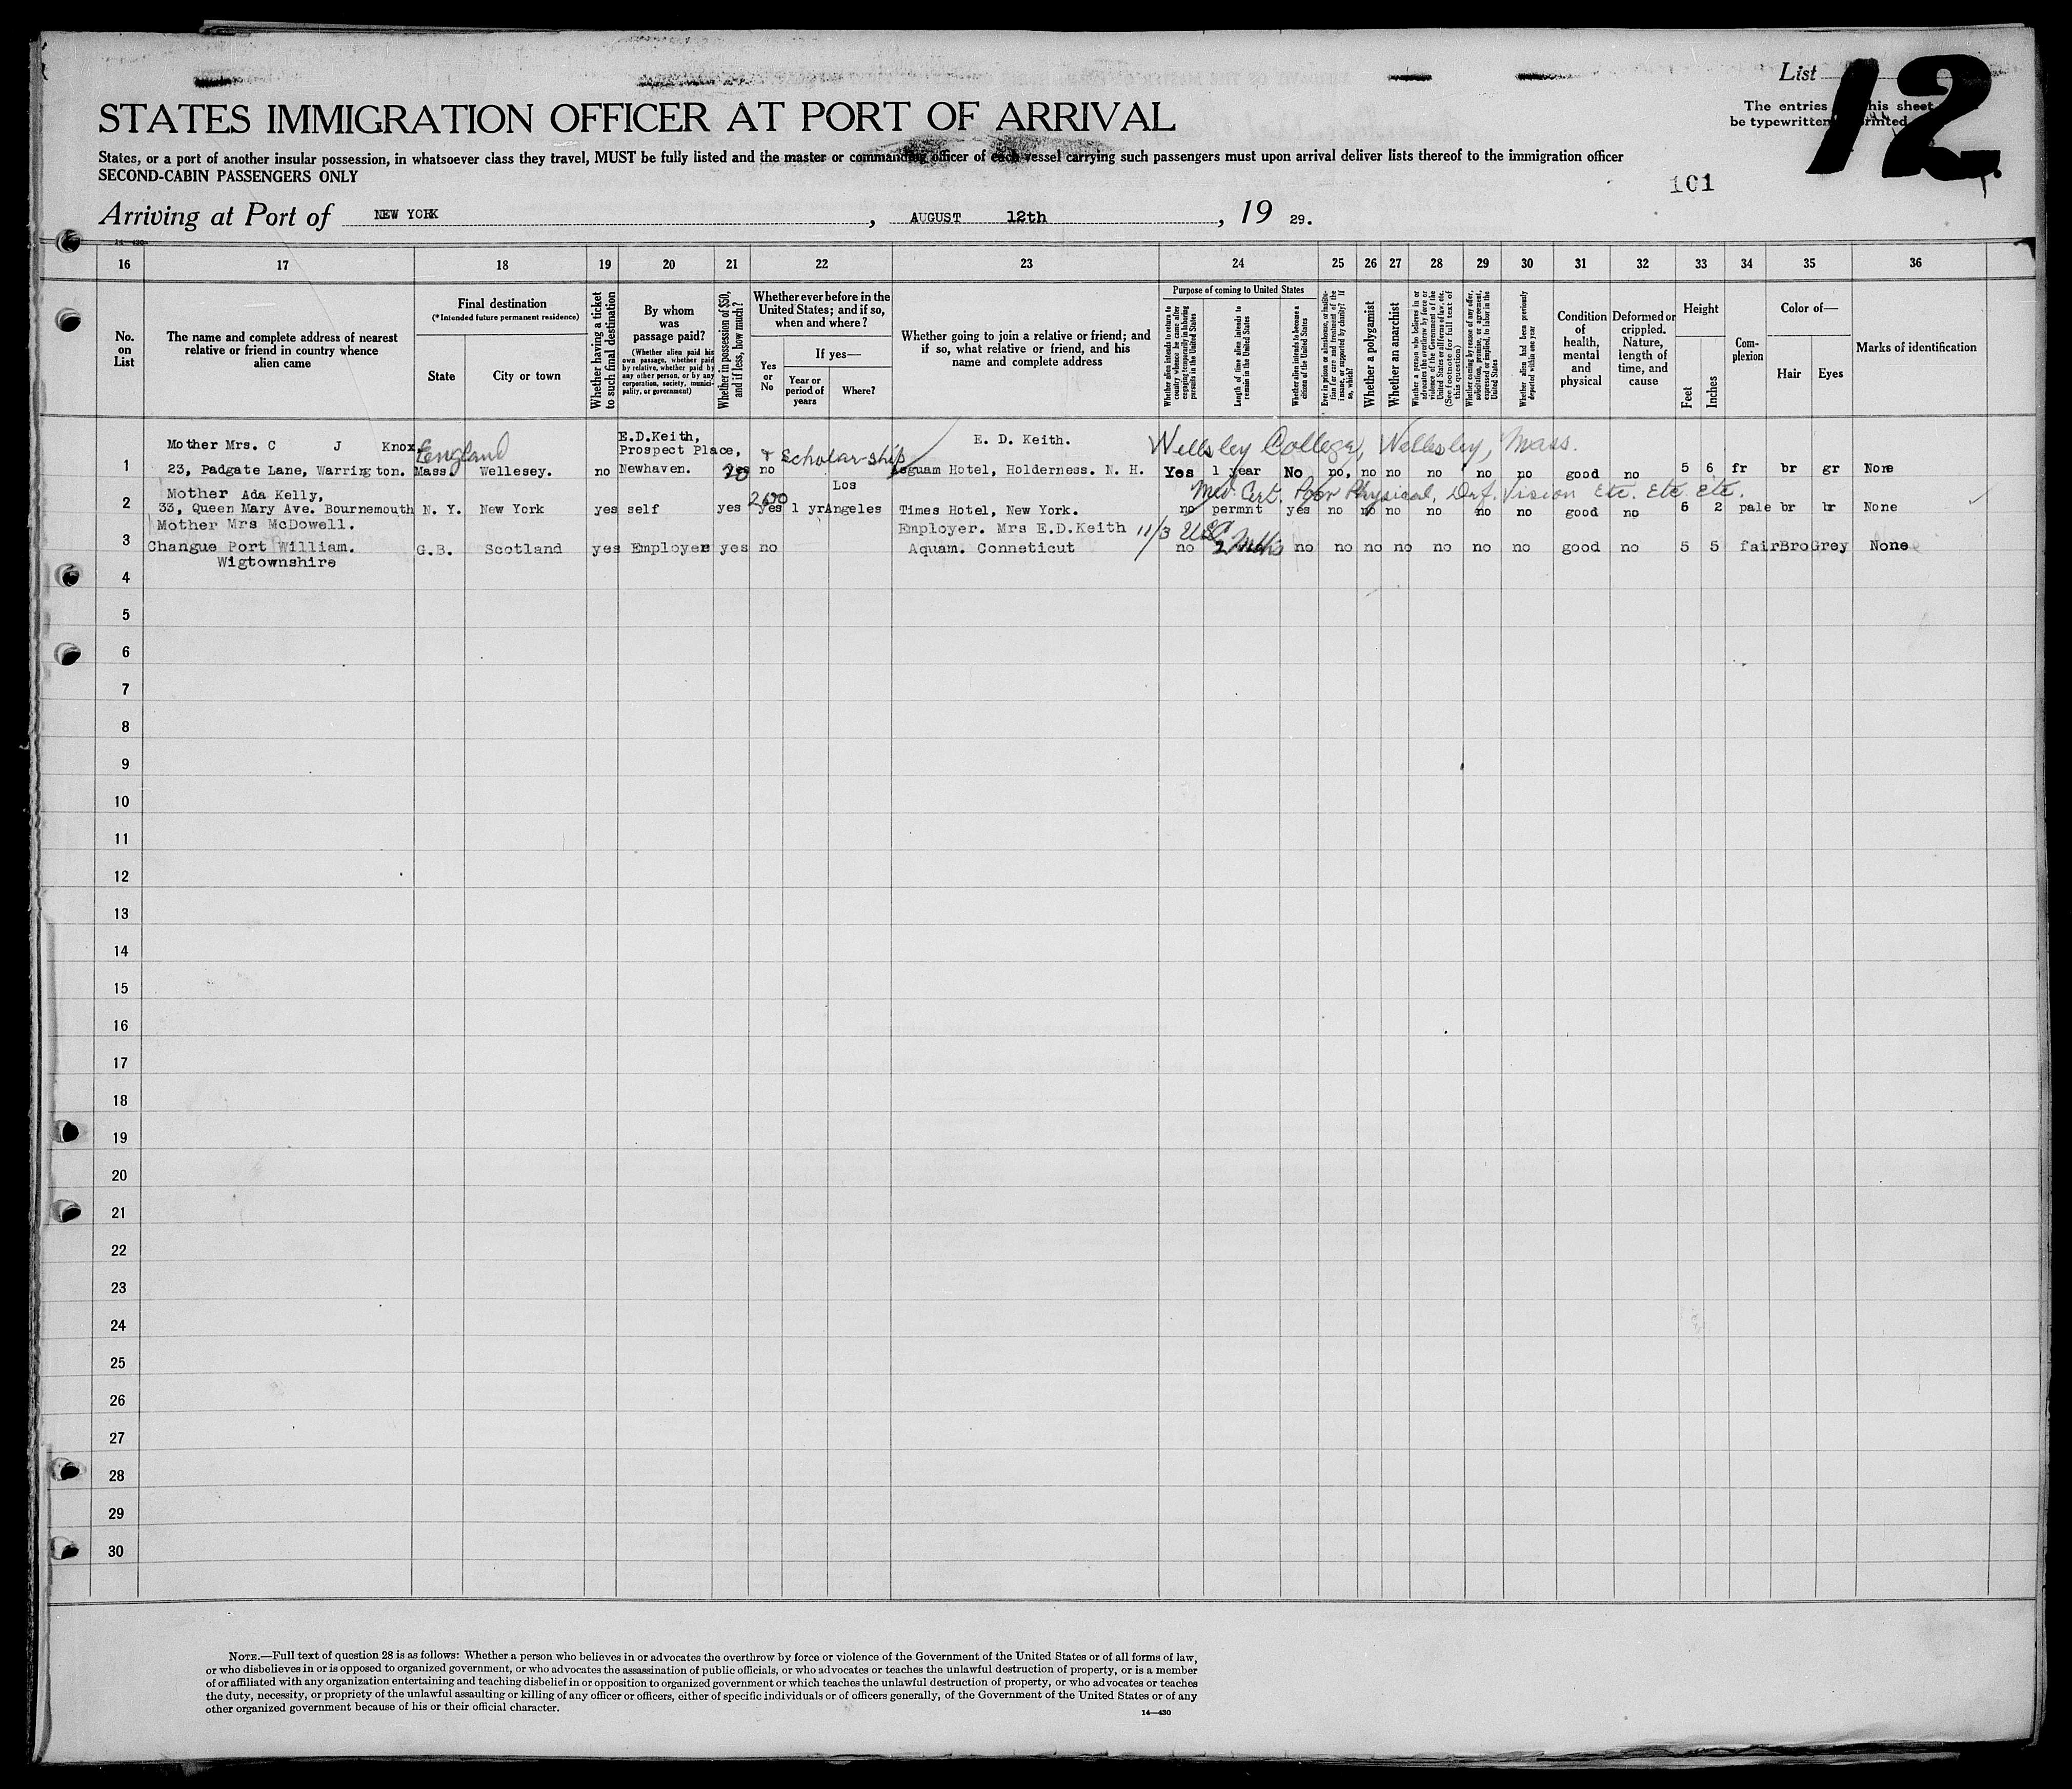 List
12
The entries his sheet
be typewritten printed
STATES IMMIGRATION OFFICER AT PORT OF ARRIVAL
States, or a port of another insular possession, in whatsoever class they travel, MUST be fully listed and the master or commanding officer of each vessel carrying such passengers must upon arrival deliver lists thereof to the immigration officer
SECOND-CABIN PASSENGERS ONLY
101
Arriving at Port of NEW YORK, AUGUST 12th, 19 29.
14—430
16 17 18 19 20 21 22 23 24 25 26 27 28 29 30 31 32 33 34 35 36
No. on List
The name and complete address of nearest relative or friend in country whence alien came
Final destination
(*Intended future permanent residence)
State
City or town
Whether having a ticket to such final destination
By whom was passage paid?
(Whether alien paid his own passage, whether paid by relative, whether paid by any other person, or by any corporation, society, municipality, or government)
Whether in possession of $50, and if less, how much?
Whether ever before in the United States; and if so, when and where?
Yes or No
If yes—
Year or period of years
Where?
Whether going to join a relative or friend; and if so, what relative or friend, and his name and complete address
Purpose of coming to United States
Whether alien intends to return to country whence he came after engaging temporarily in laboring pursuits in the United States
Length of time alien intends to remain in the United States
Whether alien intends to become a citizen of the United States
Ever in prison or almshouse, or institution for care and treatment of the insane, or supported by charity? If so, which?
Whether a polygamist
Whether an anarchist
Whether a person who believes in or advocates the overthrow by force or violence of the Government of the United States or all forms of law, etc. (See footnote for full text of this question)
Whether coming by reason of any offer, solicitation, promise, or agreement, expressed or implied, to labor in the United States
Whether alien had been previously deported within one year
Condition of health, mental and physical
Deformed or crippled. Nature, length of time, and cause
Height
Feet
Inches
Complexion
Color of—
Hair
Eyes
Marks of identification
Mother Mrs. C J Knox, England E.D.Keith, Prospect Place, & Scholar-ship E. D. Keith. Wellesley College, Wellesley, Mass.
1 23, Padgate Lane, Warrington. Mass. Wellesey. no Newhaven. yes 20 no Asquam Hotel, Holderness. N. H. Yes 1 year No no, no no no no no good no 5 6 fr br gr None
Mother Ada Kelly, 2600 Los Med. Cert. Poor Physical, Def. Vision Etc. Etc Etc.
2 33, Queen Mary Ave. Bournemouth N. Y. New York yes self yes yes 1 yr Angeles Times Hotel, New York. no permnt yes no no no no no no good no 5 2 pale br br None
Mother Mrs McDowell. Employer. Mrs E.D.Keith 11/3
3 Changue Port William. G.B. Scotland yes Employer yes no Aquam. Conneticut no 2 Mths no no no no no no no good no 5 5 fair Bro Grey None
Wigtownshire
4
5
6
7
8
9
10
11
12
13
14
15
16
17
18
19
20
21
22
23
24
25
26
27
28
29
30
NOTE.—Full text of question 28 is as follows: Whether a person who believes in or advocates the overthrow by force or violence of the Government of the United States or of all forms of law,
or who disbelieves in or is opposed to organized government, or who advocates the assassination of public officials, or who advocates or teaches the unlawful destruction of property, or is a member
of or affiliated with any organization entertaining and teaching disbelief in or opposition to organized government or which teaches the unlawful destruction of property, or who advocates or teaches
the duty, necessity, or propriety of the unlawful assaulting or killing of any officer or officers, either of specific individuals or of officers generally, of the Government of the United States or of any
other organized government because of his or their official character.
14—430